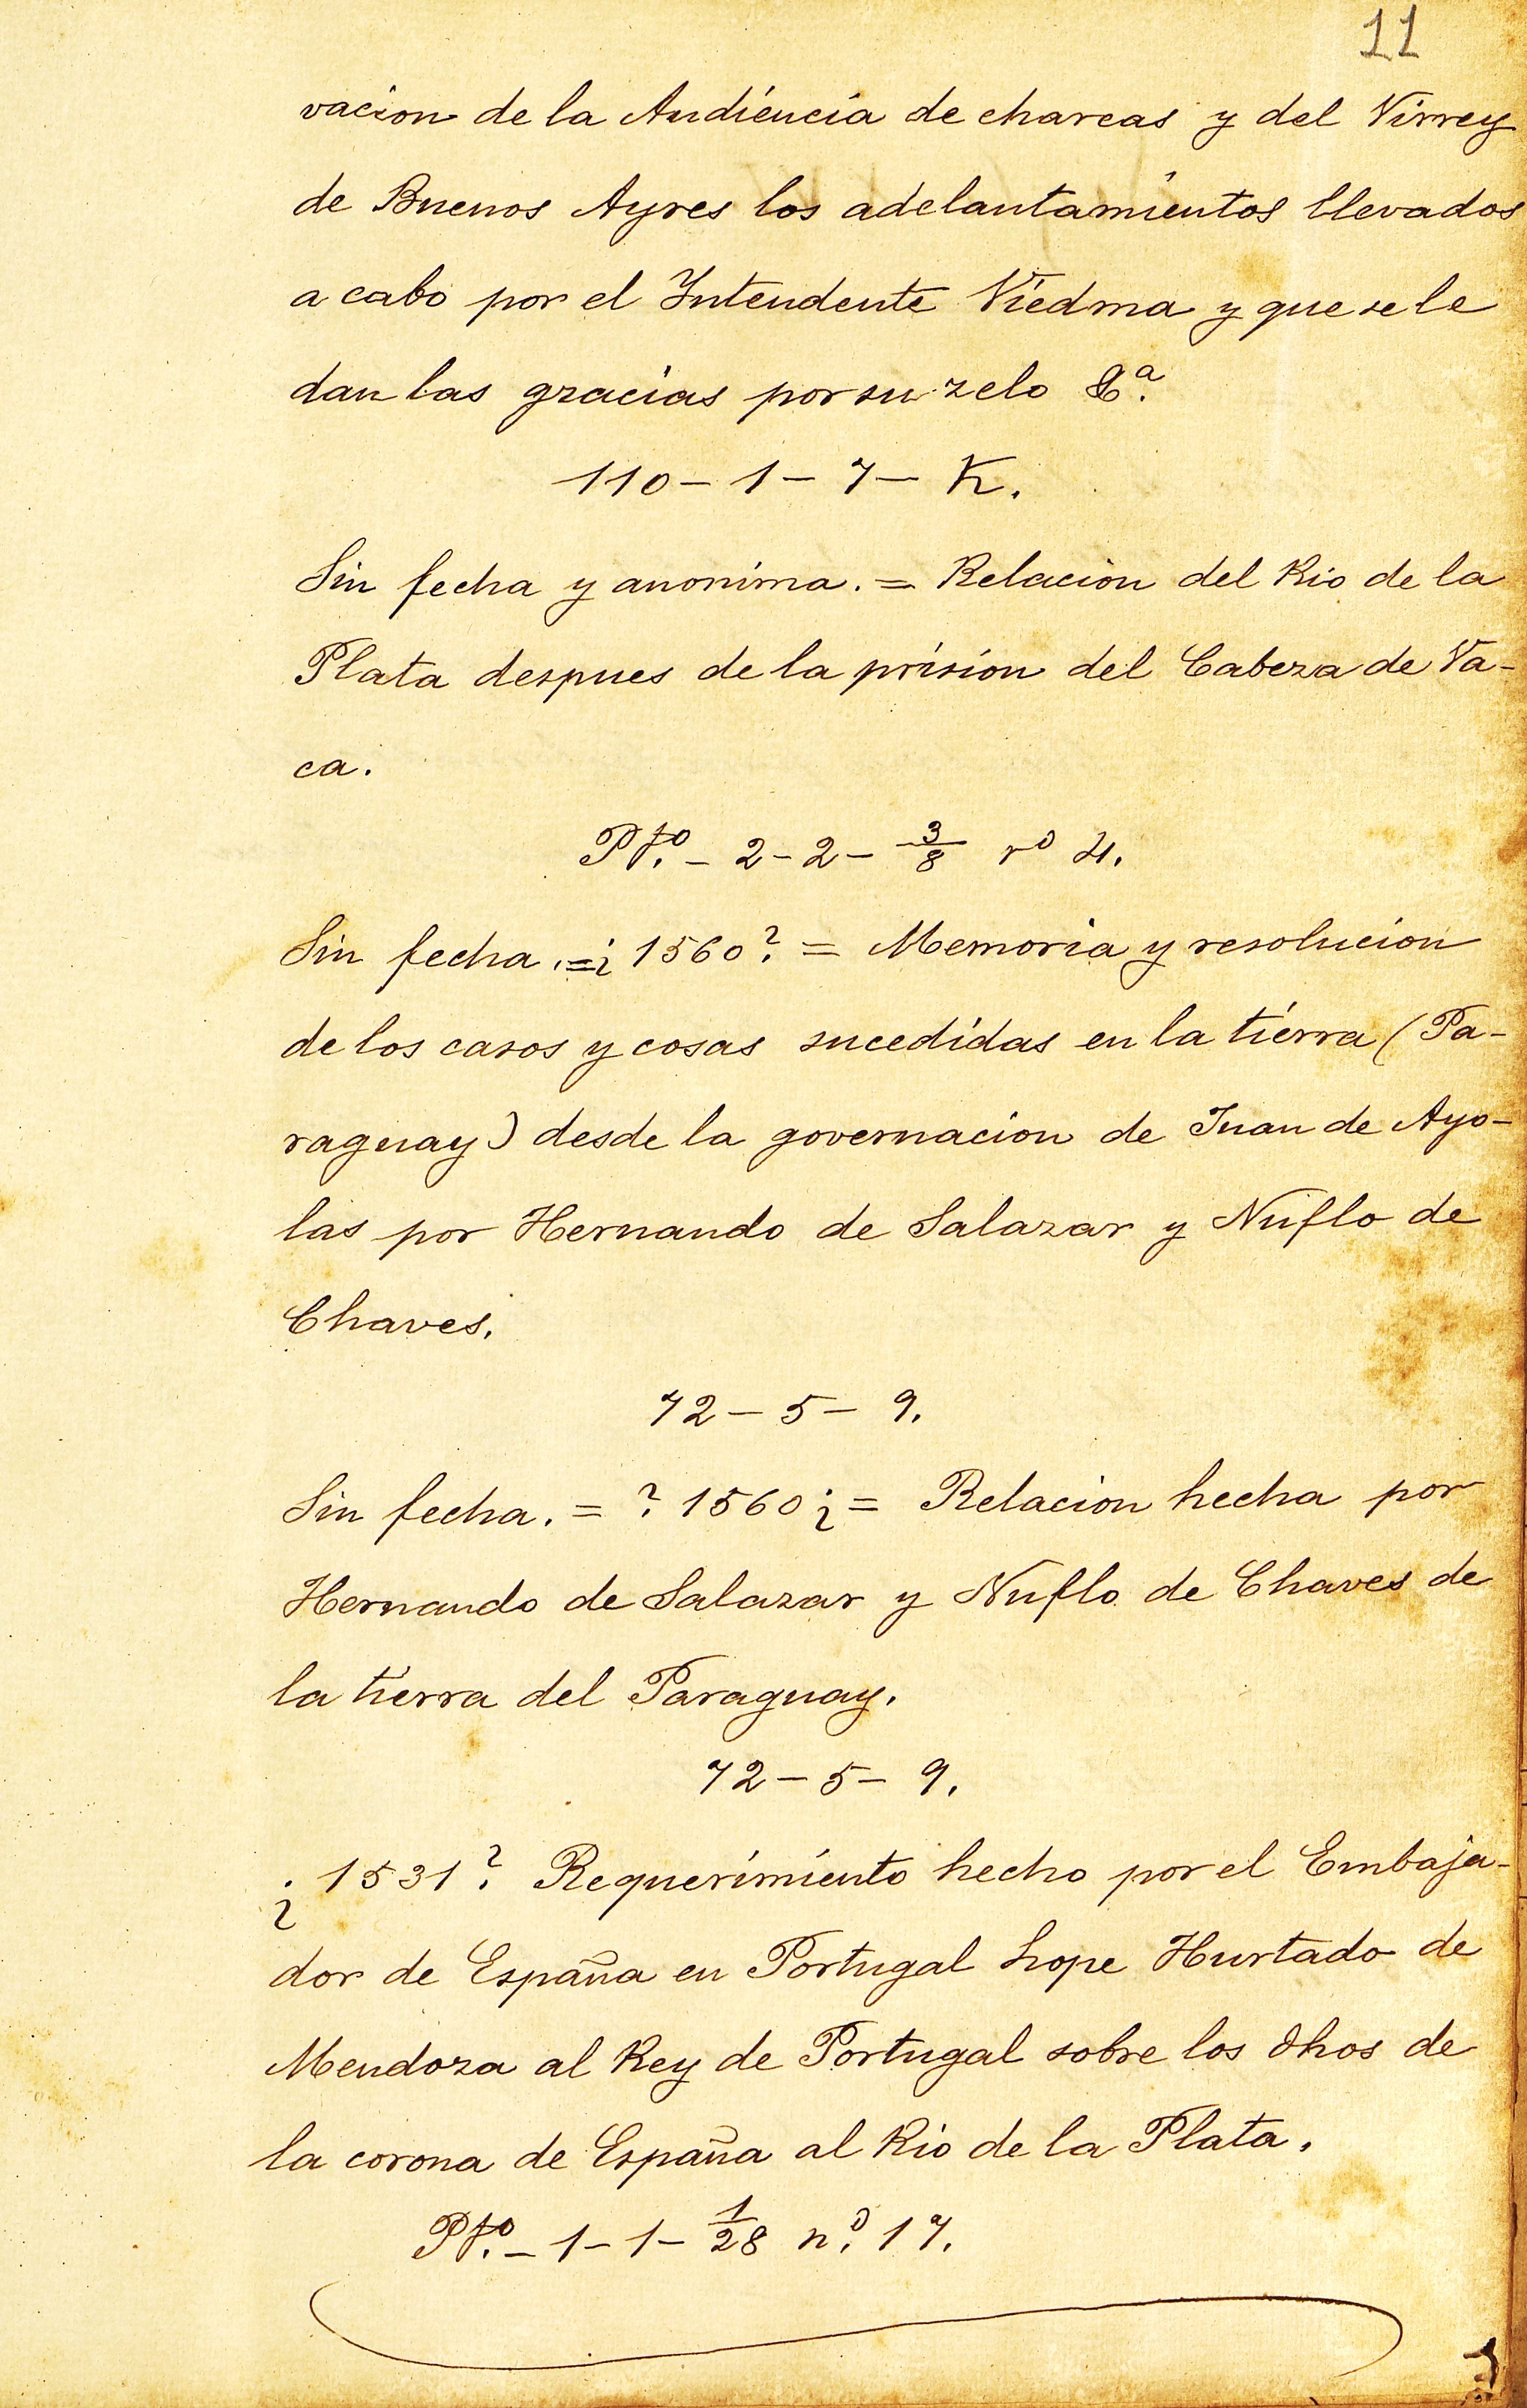 11
vacion de la Audiencia de charcas y del Virrey
de Buenos Ayres los adelantamientos llevados
a cabo por el Intendente Viedma y que se le
dan las gracias por su zelo &ª.
110 - 1 - 7 - K.
Sin fecha y anonima. = Relacion del Rio de la
Plata despues de la prision del Cabeza de Va-
ca.
Ptº. - 2 - 2 - 3/8 rº 4.
Sin fecha. = ¿1560? = Memoria y resolucion
de los casos y cosas sucedidas en la tierra (Pa-
raguay) desde la governacion de Juan de Ayo-
las por Hernando de Salazar y Nuflo de
Chaves.
72 - 5 - 9.
Sin fecha. = ?1560¿ = Relacion hecha por
Hernando de Salazar y Nuflo de Chaves de
la tierra del Paraguay.
72 - 5 - 9.
¿1531? Requerimiento hecho por el Embaja-
dor de España en Portugal Lope Hurtado de
Mendoza al Rey de Portugal sobre los dhos de
la corona de España al Rio de la Plata.
Ptº. - 1 - 1 - 1/28 nº. 17.